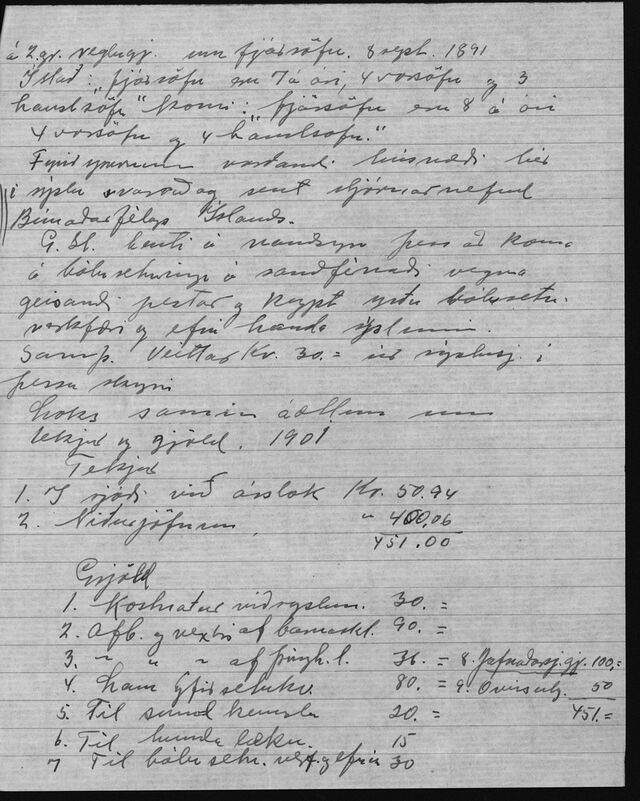 á 2. gr. reglugj. um fjársöfn. 8 sept. 1891
Í stað: "fjársöfn eru 7 á ári, 4 vorsöfn og 3
haustsöfn" komi: "fjársöfn eru 8 á ári
4 vorsöfn og 4 haustsöfn."
Fyrirspurnum varðandi húsnæði hér
í sýslu svarað og sent stjórnarnefnd
Búnaðarfélags Íslands.
G. Sl. benti á nauðsyn þess að koma
á bólusetningu á sauðfénaði vegna
geisandi pestar og keypt yrðu bólusetn.
verkfæri og efni handa sýslunni.
Samþ. Veittar Kr. 30.= úr sýslusj. í
þessu skyni
Loks samin áætlun um
tekjur og gjöld. 1901
Tekjur
1. Í sjóði við árslok Kr. 50.94
2. Niðurjöfnun " 400.06
451.00
Gjöld
1. Kostnatur við sýslun. 30.=
2. Afb. og vextir af barnaskl. 90.=
3. " " " af þingh. l. 36.= 8. Jafnaðarsj. gj. 100.=
4. 80.= 9. Óviss utg. 50
5. Til sund kenslu 20.= 451.=
6. Til hunda lækn. 15
7 Til bólu setn. verkf. efni 30